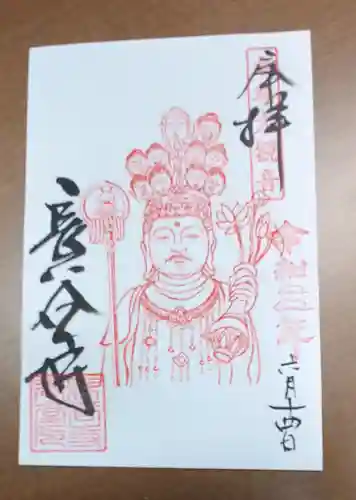 奉拝
令和三年
六月十四日
長谷寺